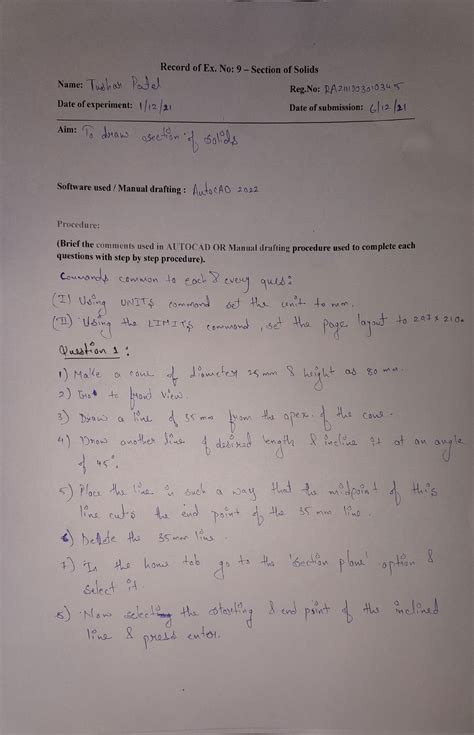 Record of Ex. No: 9 – Section of Solids
Name: Tushar Patel Reg.No: RA2111003010345
Date of experiment: 1/12/21 Date of submission: 6/12/21
Aim: To draw section of solids
Software used / Manual drafting : AutoCAD 2022
Procedure:
(Brief the comments used in AUTOCAD OR Manual drafting procedure used to complete each
questions with step by step procedure).
Commands common to each & every ques:
(I) Using UNITS command set the unit to mm.
(II) Using the LIMITS command, set the page layout to 297 x 210.
Question 1 :
1) Make a cone of diameter 25 mm & height as 80 mm.
2) to front view.
3) Draw a line of 35 mm from the apex of the cone.
4) Draw another line of desired length & incline it at an angle
of 45°.
5) Place the line in such a way that the midpoint of this
line cuts the end point of the 35 mm line.
6) Delete the 35 mm line.
7) In the home tab go to the 'section plane' option &
select it.
8) Now the starting & end point of the inclined
line & press enter.